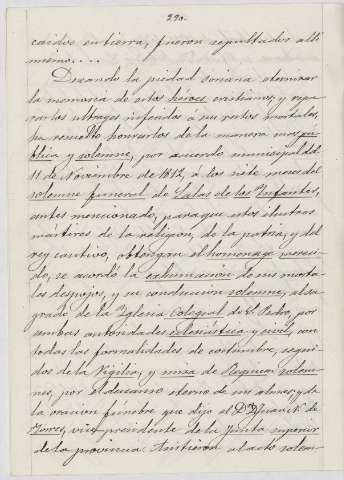 290.
caidos en tierra, fueron sepultados allí
mismo....
Deseando la piedad soriana eternizar
la memoria de estos héroes cristianos, y repa-
rar los ultrages inferidos a sus restos mortales,
ha resuelto honrarlos de la manera mas pú-
blica y solemne, por acuerdo municipal del
11 de Noviembre de 1812, a los siete meses del
solemne funeral de Salas de los Infantes,
antes mencionado, para que estos ilustres
mártires de la religion, de la patria, y del
rey cautivo, obtengan el homenage mereci-
do, se acordó la exhumacion de sus morta-
les despojos, y su conduccion solemne, al sa-
grado de la Iglesia Colegial de S. Pedro, por
ambas autoridades eclesiástica y civil, con
todas las formalidades de costumbre, segui-
dos de la Vigilia, y misa de Requiem solem-
nes, por el descanso eterno de sus almas, y de
la oracion fúnebre que dijo el Dr. Juan K. de
Torres, vice-presidente de la Junta superior
de la provincia. Asistieron al acto solem-